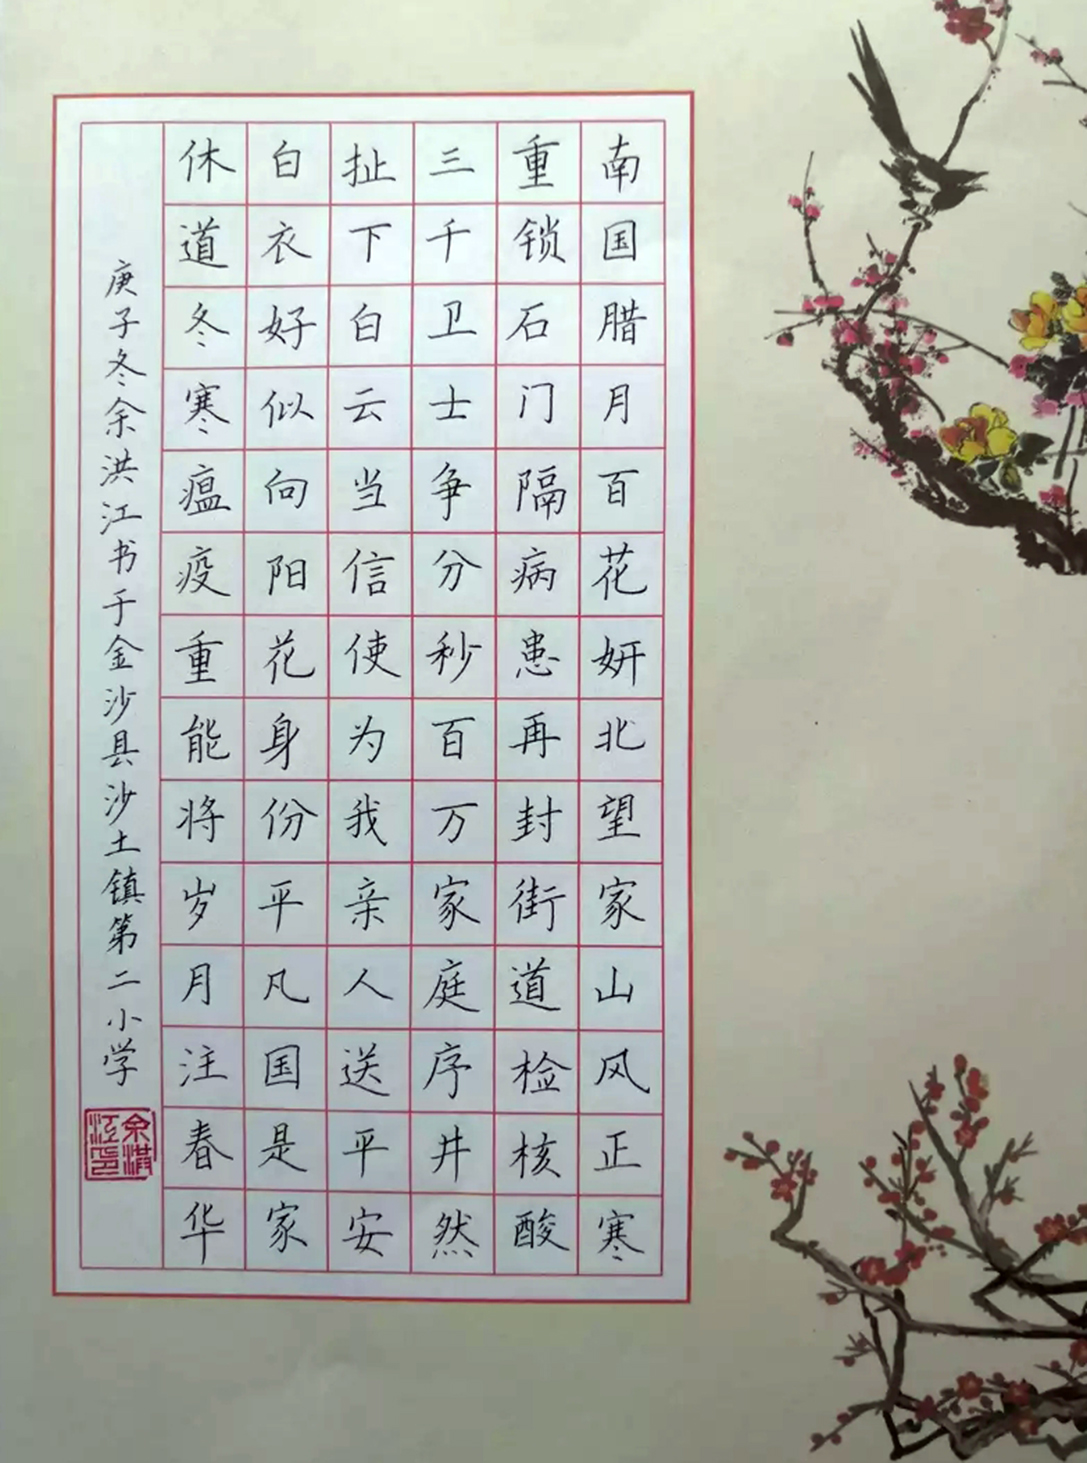 南国腊月百花妍北望家山风正寒
重锁石门隔病患再封街道检核酸
三千卫士争分秒百万家庭序井然
扯下白云当信使为我亲人送平安
白衣好似向阳花身份平凡国是家
休道冬寒瘟疫重能将岁月注春华
庚子冬余洪江书于金沙县沙土镇第二小学
余洪江印